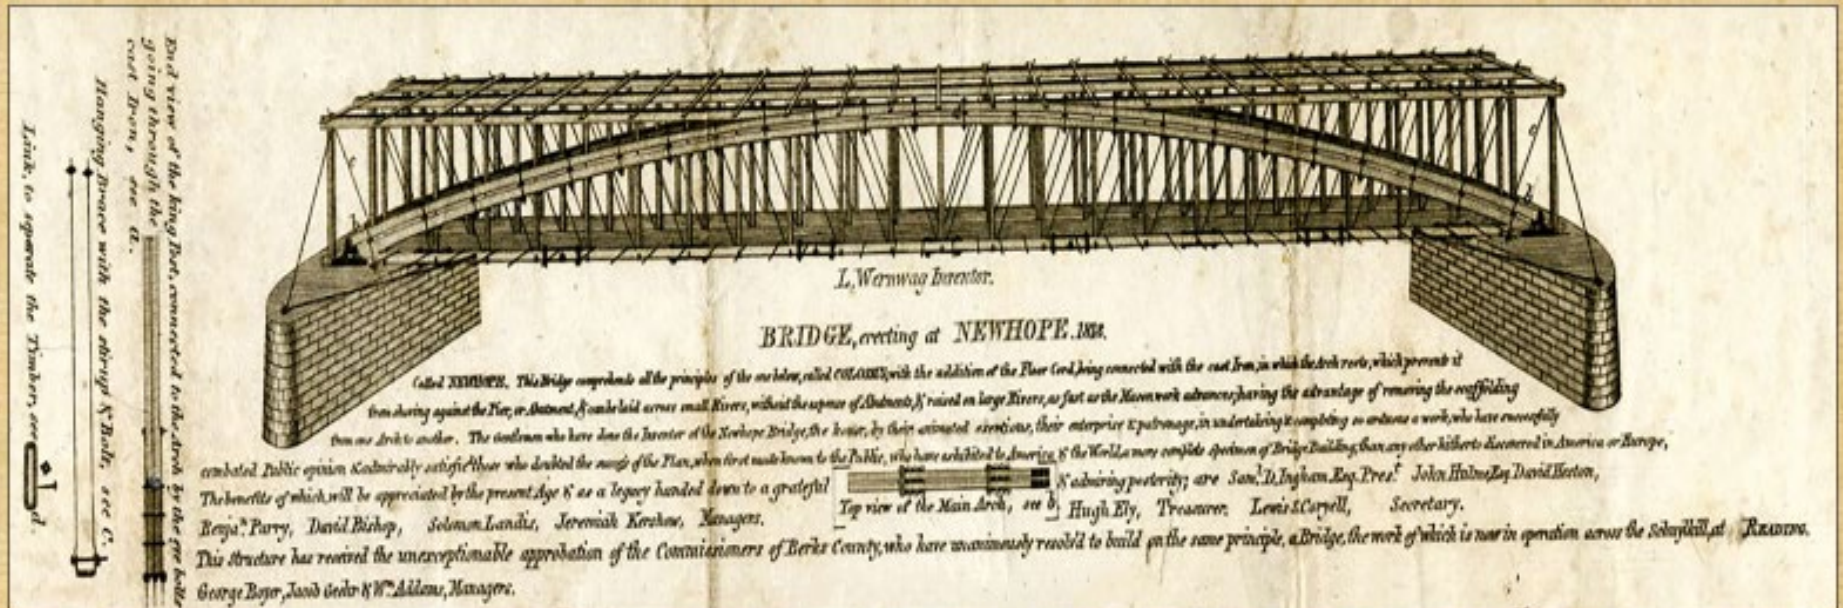 L, Wernwag Inventor.
BRIDGE, erecting at NEWHOPE.
Called NEWHOPE. This Bridge comprehends all the principles of the one below, called COLOSSUS, with the addition of the Floor Cord, being connected with the cast Iron, in which the Arch rests, which prevents it
from shoving against the Pier, or Abutment, & can be laid across small Rivers, without the expense of Abutments, & raised on large Rivers, as fast as the Mason work advances, having the advantage of removing the scaffolding
from one Arch to another. The Gentlemen who have done the Inventor of the Newhope Bridge, the honor, by their animated exertions, their enterprise & patronage, in undertaking & completing so arduous a work, who have successfully
combated Public opinion & admirably satisfied those who doubted the success of the Plan, when first made known to the Public, who have exhibited to America, & the World, a more complete specimen of Bridge Building, than any other hitherto discovered in America or Europe,
The benefits of which, will be appreciated by the present Age & as a legacy handed down to a grateful & admiring posterity; are Sam.l D. Ingham Esq. Pres.t John Hulme Esq. David Heston,
Benja.n Parry, David Bishop, Solomon Landis, Jeremiah Kershow, Managers. Hugh Ely, Treasurer. Lewis S. Coryell, Secretary.
Top view of the Main Arch, see b.
This Structure has received the unexceptionable approbation of the Commissioners of Berks County, who have unanimously resolv'd to build on the same principle, a Bridge, the work of which is now in operation across the Schuylkill, at READING.
George Boyer, Jacob Geehr & Wm. Addams, Managers.
End view of the King Post, connected to the Arch by the eye bolts
going through the
cast Iron, see a.
Hanging Brace with the stirrup & Bolt, see C.
Link, to separate the Timber, see d.